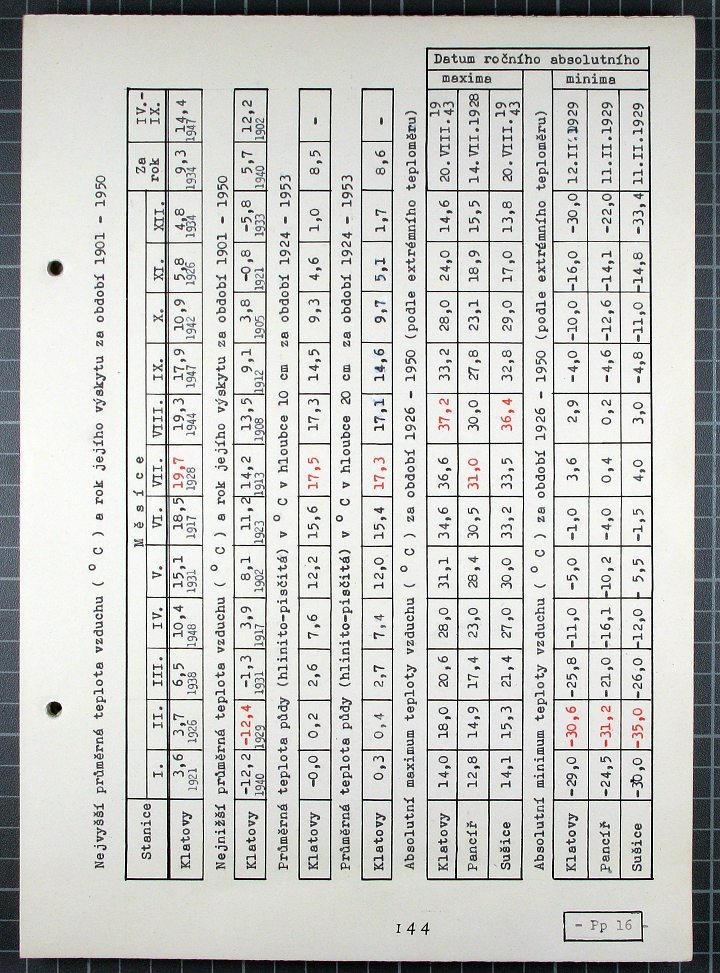 Nejvyšší průměrná teplota vzduchu ( ° C ) a rok jejího výskytu za období 1901 - 1950
Stanice M ě s í c e Za rok IV.-IX.
I. II. III. IV. V. VI. VII. VIII. IX. X. XI. XII.
Klatovy 3,6 3,7 6,5 10,4 15,1 18,5 19,7 19,3 17,9 10,9 5,8 4,8 9,3 14,4
1921 1926 1938 1948 1931 1917 1928 1944 1947 1942 1926 1934 1934 1947
Nejnižší průměrná teplota vzduchu ( ° C ) a rok jejího výskytu za období 1901 - 1950
Klatovy -12,2 -12,4 -1,3 3,9 8,1 11,2 14,2 13,5 9,1 3,8 -0,8 -5,8 5,7 12,2
1940 1929 1931 1917 1902 1923 1913 1908 1912 1905 1921 1933 1940 1902
Průměrná teplota půdy (hlinito-pisčitá) v ° C v hloubce 10 cm za období 1924 - 1953
Klatovy -0,0 0,2 2,6 7,6 12,2 15,6 17,5 17,3 14,5 9,3 4,6 1,0 8,5 -
Průměrná teplota půdy (hlinito-pisčitá) v ° C v hloubce 20 cm za období 1924 - 1953
Klatovy 0,3 0,4 2,7 7,4 12,0 15,4 17,3 17,1 14,6 9,7 5,1 1,7 8,6 -
Absolutní maximum teploty vzduchu ( ° C ) za období 1926 - 1950 (podle extrémního teploměru)
Datum ročního absolutního
maxima
Klatovy 14,0 18,0 20,6 28,0 31,1 34,6 36,6 37,2 33,2 28,0 24,0 14,6 20.VIII.1943
Pancíř 12,8 14,9 17,4 23,0 28,4 30,5 31,0 30,0 27,8 23,1 18,9 15,5 14.VII.1928
Sušice 14,1 15,3 21,4 27,0 30,0 33,2 33,5 36,4 32,8 29,0 17,0 13,8 20.VIII.1943
Absolutní minimum teploty vzduchu ( ° C ) za období 1926 - 1950 (podle extrémního teploměru)
minima
Klatovy -29,0 -30,6 -25,8 -11,0 -5,0 -1,0 3,6 2,9 -4,0 -10,0 -16,0 -30,0 12.II.1929
Pancíř -24,5 -31,2 -21,0 -16,1 -10,2 -4,0 0,4 0,2 -4,6 -12,6 -14,1 -22,0 11.II.1929
Sušice -30,0 -35,0 -26,0 -12,0 - 5,5 -1,5 4,0 3,0 -4,8 -11,0 -14,8 -33,4 11.II.1929
144
- Pp 16 -